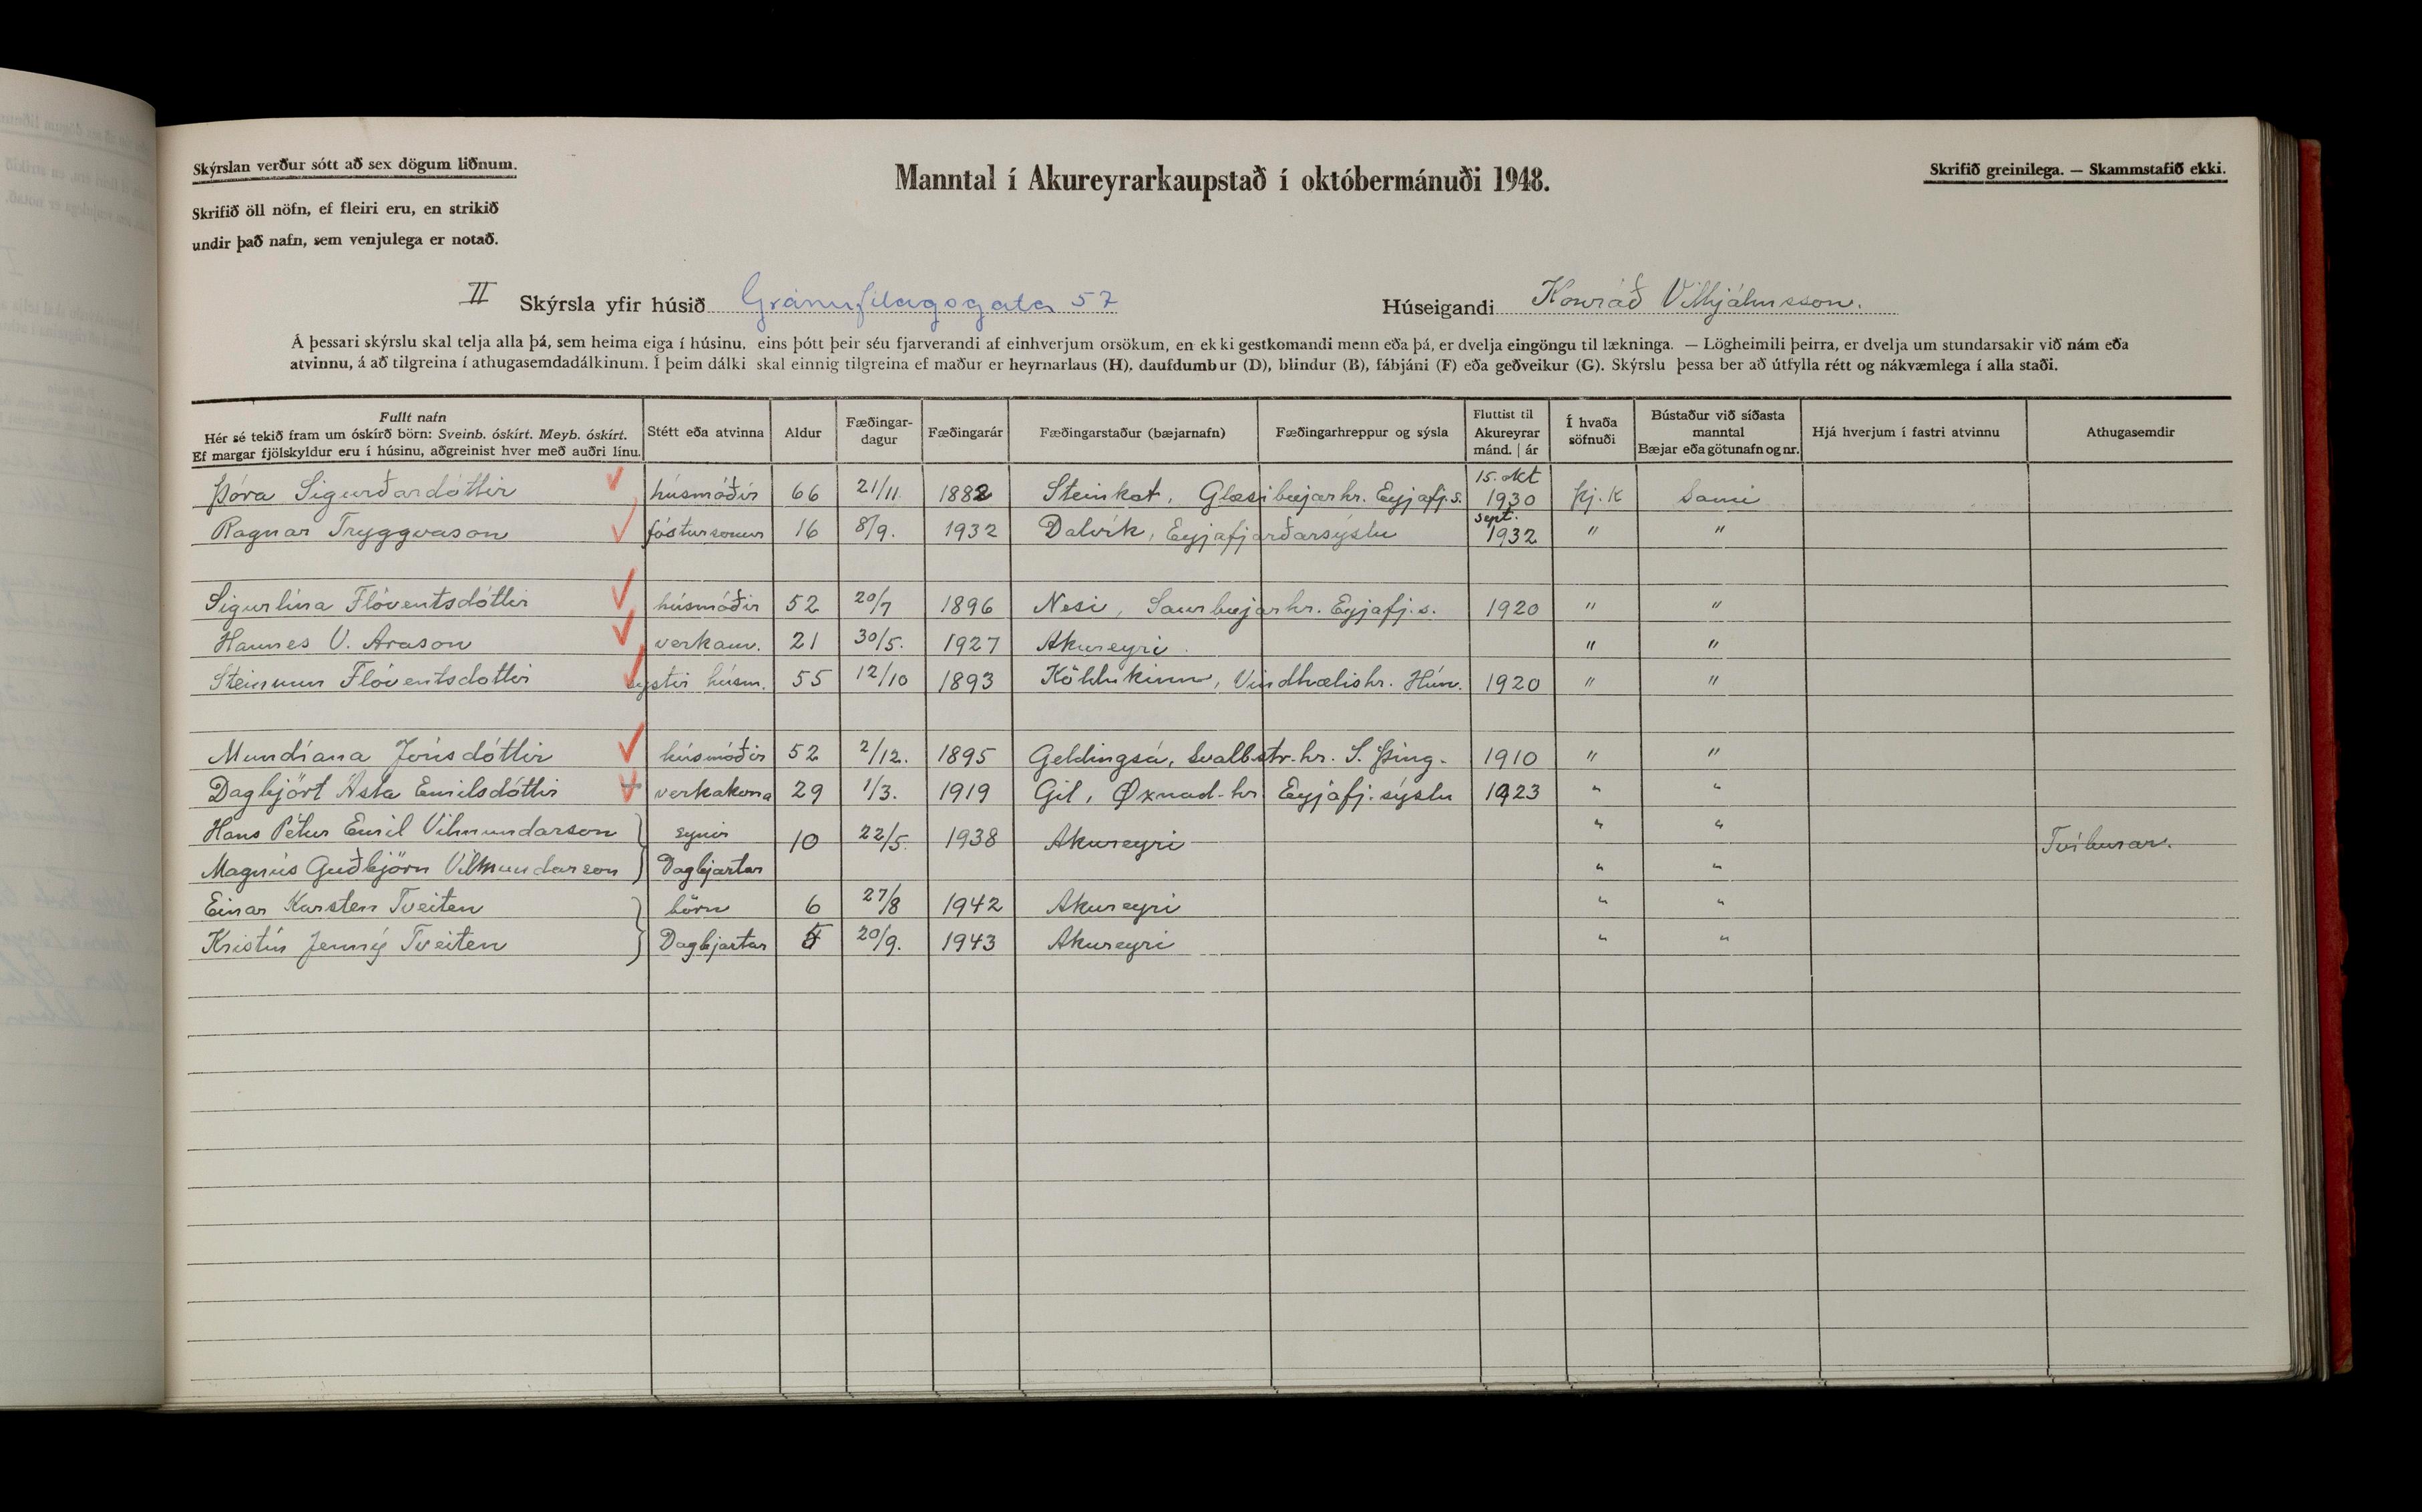 Skýrslan verður sótt að sex dögum liðnum.
Manntal í Akureyrarkaupstað í októbermánuði 1948.
Skrifið greinilega. — Skammstafið ekki.
Skrifið öll nöfn, ef fleiri eru, en strikið
undir það nafn, sem venjulega er notað.
II Skýrsla yfir húsið Gránufélagsgata 57 Húseigandi Konráð Vilhjálmsson.
Á þessari skýrslu skal telja alla þá, sem heima eiga í húsinu, eins þótt þeir séu fjarverandi af einhverjum orsökum, en ekki gestkomandi menn eða þá, er dvelja eingöngu til lækninga. — Lögheimili þeirra, er dvelja um stundarsakir við nám eða
atvinnu, á að tilgreina í athugasemdadálkinum. Í þeim dálki skal einnig tilgreina ef maður er heyrnarlaus (H), daufdumbur (D), blindur (B), fábjáni (F) eða geðveikur (G). Skýrslu þessa ber að útfylla rétt og nákvæmlega í alla staði.
Fullt nafn
Hér sé tekið fram um óskírð börn: Sveinb. óskírt. Meyb. óskírt.
Ef margar fjölskyldur eru í húsinu, aðgreinist hver með auðri línu.
Stétt eða atvinna
Aldur
Fæðingar-
dagur
Fæðingarár
Fæðingarstaður (bæjarnafn)
Fæðingarhreppur og sýsla
Fluttist til
Akureyrar
mánd. | ár
Í hvaða
söfnuði
Bústaður við síðasta
manntal
Bæjar eða götunafn og nr.
Hjá hverjum í fastri atvinnu
Athugasemdir
Þóra Sigurðardóttir húsmóðir 66 21/11. 1882 Steinkot, Glæsibæjarhr. Eyjafj.s. 15. okt 1930 Þj.K Sami
Ragnar Tryggvason fóstursonur 16 8/9. 1932 Dalvík, Eyjafjarðarsýslu sept. 1932 " "
Sigurlína Flóventsdóttir húsmóðir 52 20/7 1896 Nesi, Saurbæjarhr. Eyjafj.s. 1920 " "
Hannes V. Arason verkam. 21 30/5. 1927 Akureyri. " "
Steinunn Flóventsdottir systir húsm. 55 12/10 1893 Köldukinn, Vindhælishr. Hún. 1920 " "
Mundíana Jónsdóttir húsmóðir 52 2/12. 1895 Geldingsá, Svalbstr.hr. S. Þing. 1910 " "
Dagbjört Ásta Emilsdóttir verkakona 29 1/3. 1919 Gil, Øxnad-hr. Eyjafj.sýslu 1923 " "
Hans Pétur Emil Vilmundarson synir 10 22/5. 1938 Akureyri " " Tvíburar.
Magnús Guðbjörn Vilmundarson Dagbjartar " "
Einar Karsten Tveiten börn 6 27/8 1942 Akureyri " "
Kristín Jenný Tveiten Dagbjartar 5 20/9. 1943 Akureyri " "